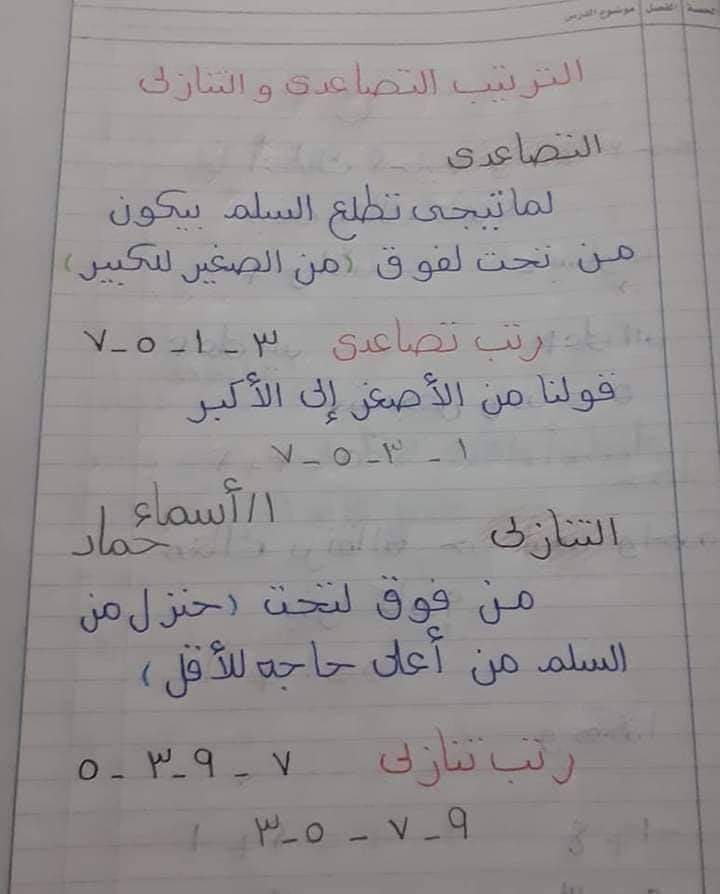 الحصة الفصل موضوع الدرس
الترتيب التصاعدى و التنازلى
التصاعدى
لما تيجى تطلع السلم بيكون
من تحت لفوق (من الصغير للكبير)
رتب تصاعدى ٣ - ١ - ٥ - ٧
قولنا من الأصغر إلى الأكبر
١ - ٣ - ٥ - ٧
ا/ أسماء حماد
التنازلى
من فوق لتحت (حنزل من
السلم من أعلى حاجه للأقل)
رتب تنازلى ٧ - ٩ - ٣ - ٥
٩ - ٧ - ٥ - ٣